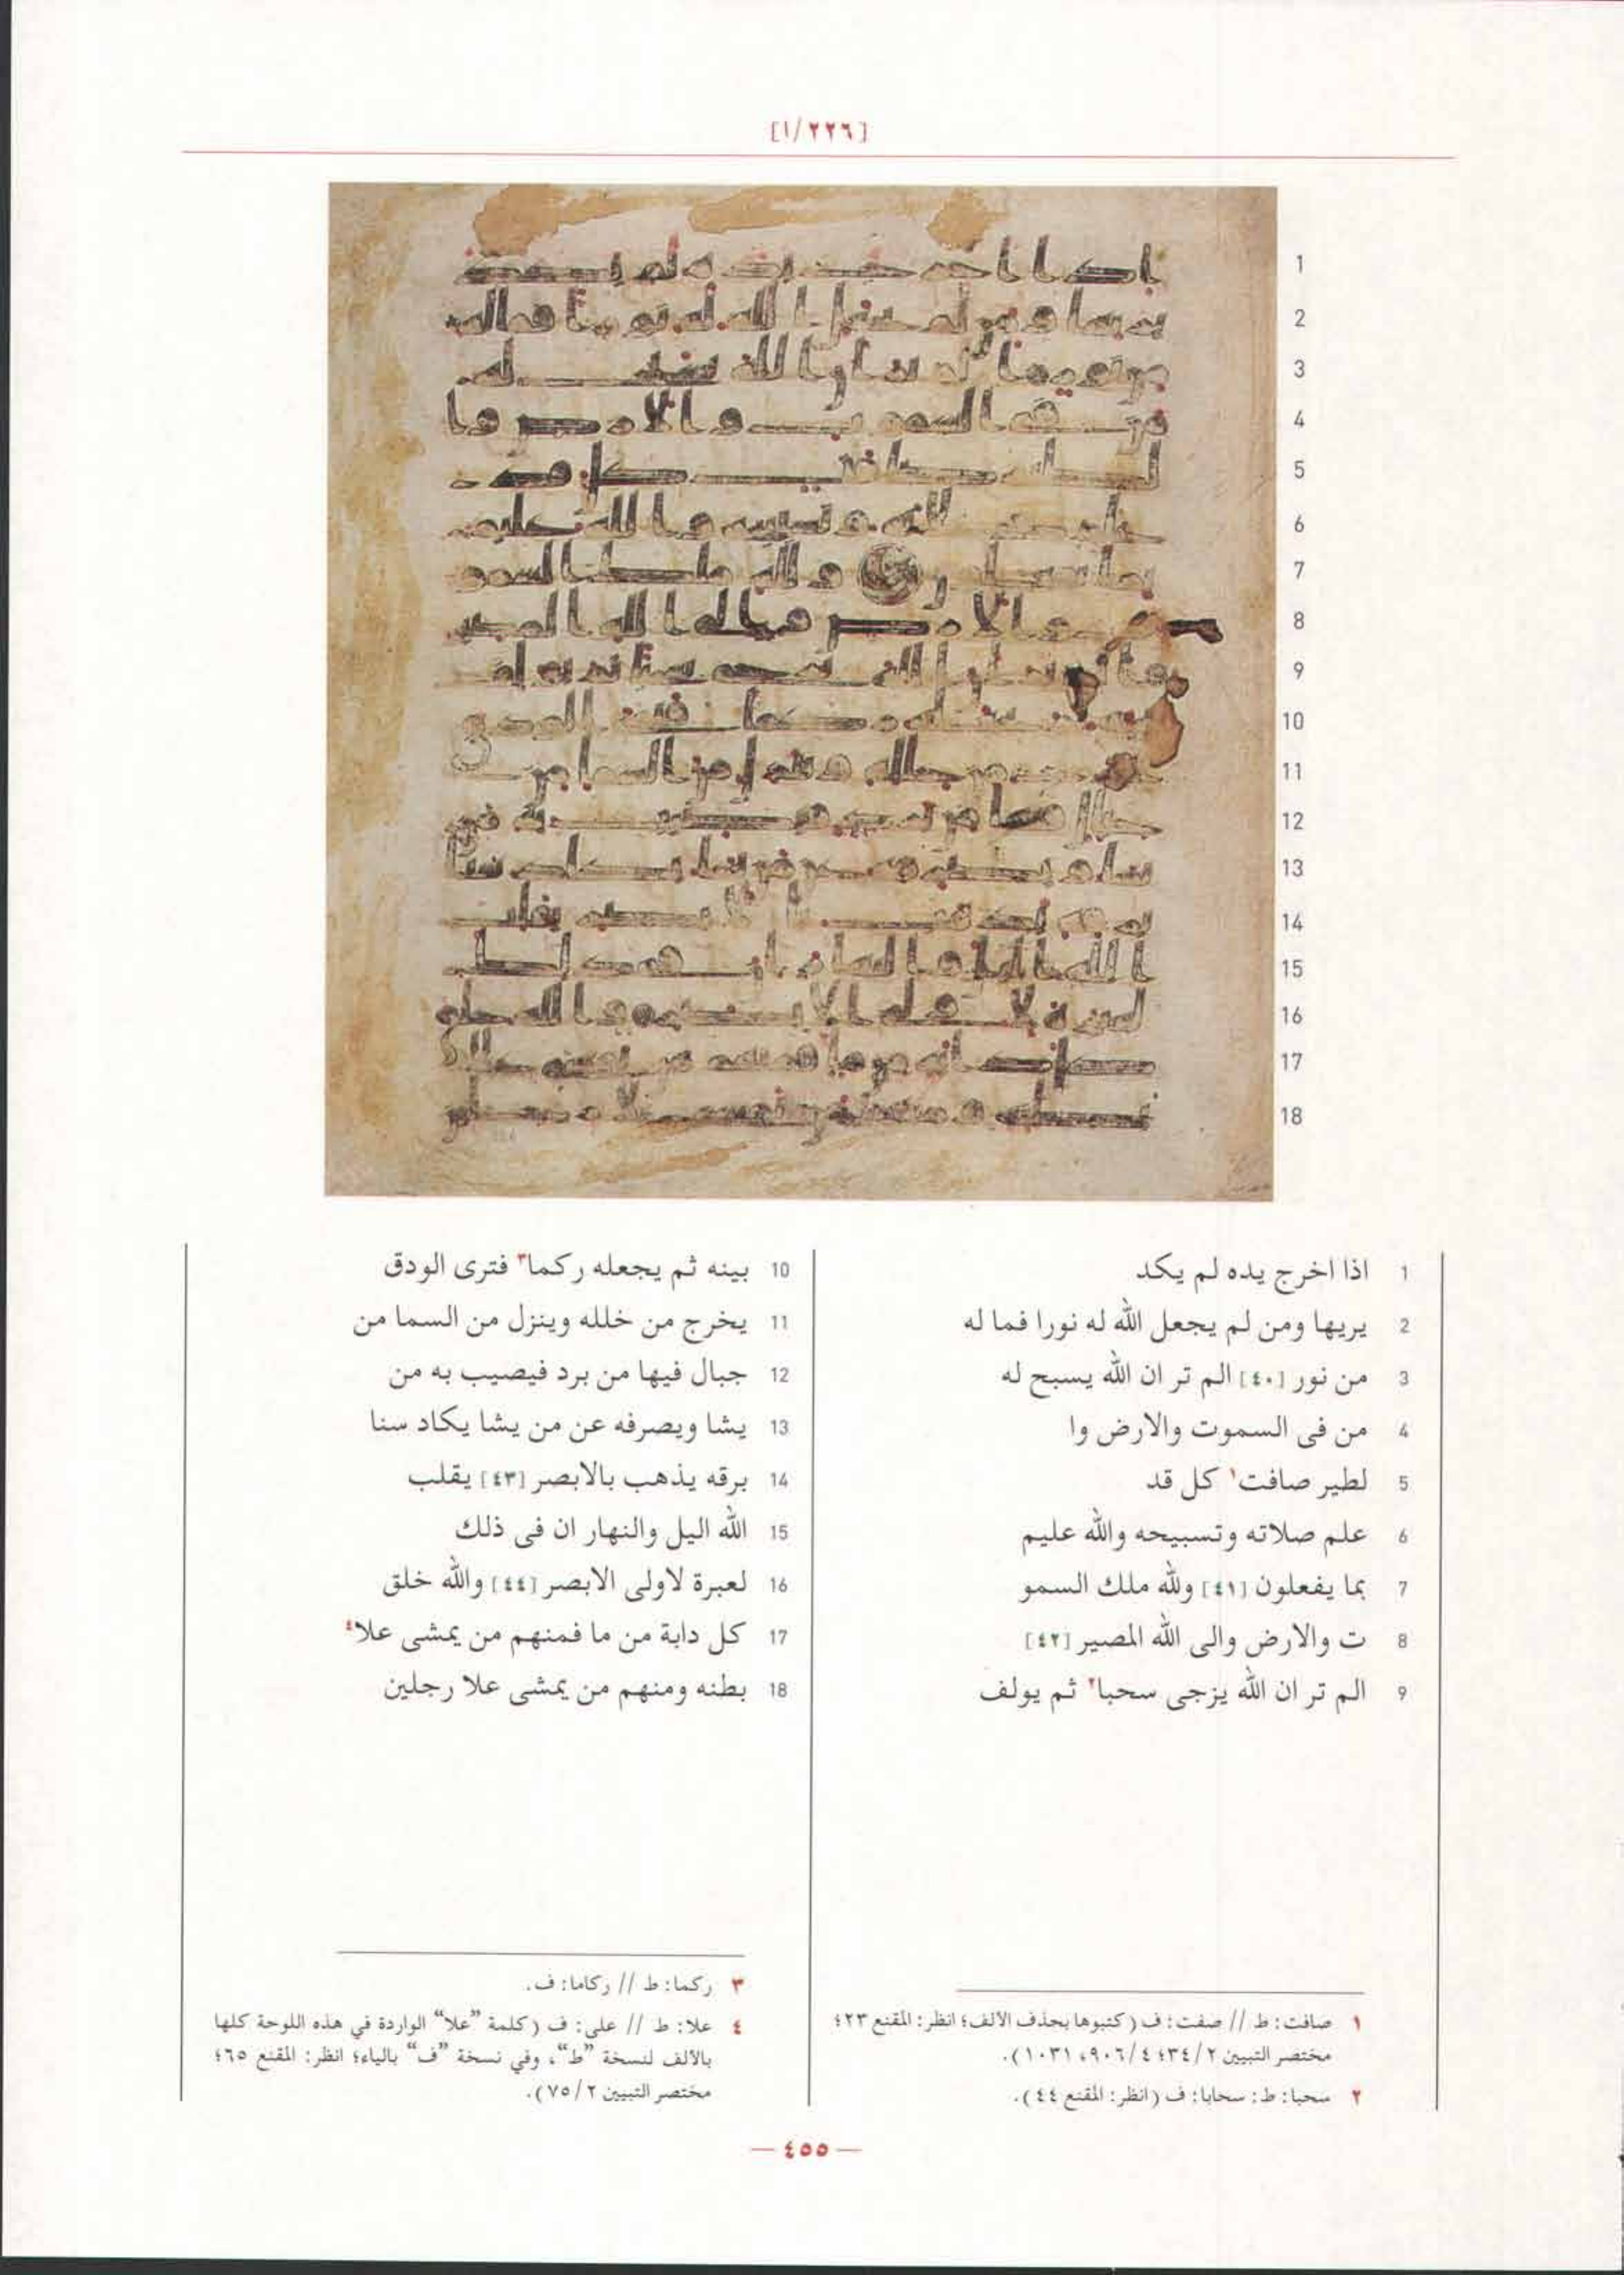 [١/٢٢٦]
1 اذا اخرج يده لم يكد
2 يريها ومن لم يجعل الله له نورا فما له
3 من نور [٤٠] الم تر ان الله يسبح له
4 من فى السموت والارض وا
5 لطير صافت١ كل قد
6 علم صلاته وتسبيحه والله عليم
7 بما يفعلون [٤١] ولله ملك السمو
8 ت والارض والى الله المصير [٤٢]
9 الم تر ان الله يزجى سحبا٢ ثم يولف
10 بينه ثم يجعله ركما٣ فترى الودق
11 يخرج من خلله وينزل من السما من
12 جبال فيها من برد فيصيب به من
13 يشا ويصرفه عن من يشا يكاد سنا
14 برقه يذهب بالابصر [٤٣] يقلب
15 الله اليل والنهار ان فى ذلك
16 لعبرة لاولى الابصر [٤٤] والله خلق
17 كل دابة من ما فمنهم من يمشى علا٤
18 بطنه ومنهم من يمشى علا رجلين
١ صافت: ط // صفت: ف (كتبوها بحذف الألف؛ انظر: المقنع ٢٣؛
مختصر التبيين ٢/ ٣٤؛ ٤/ ٩٠٦، ١٠٣١).
٢ سحبا: ط: سحابا: ف (انظر: المقنع ٤٤).
٣ ركما: ط // ركاما: ف.
٤ علا: ط // على: ف (كلمة ”علا“ الواردة في هذه اللوحة كلها
بالألف لنسخة ”ط“، وفي نسخة ”ف“ بالياء؛ انظر: المقنع ٦٥؛
مختصر التبيين ٢/ ٧٥).
— ٤٥٥ —